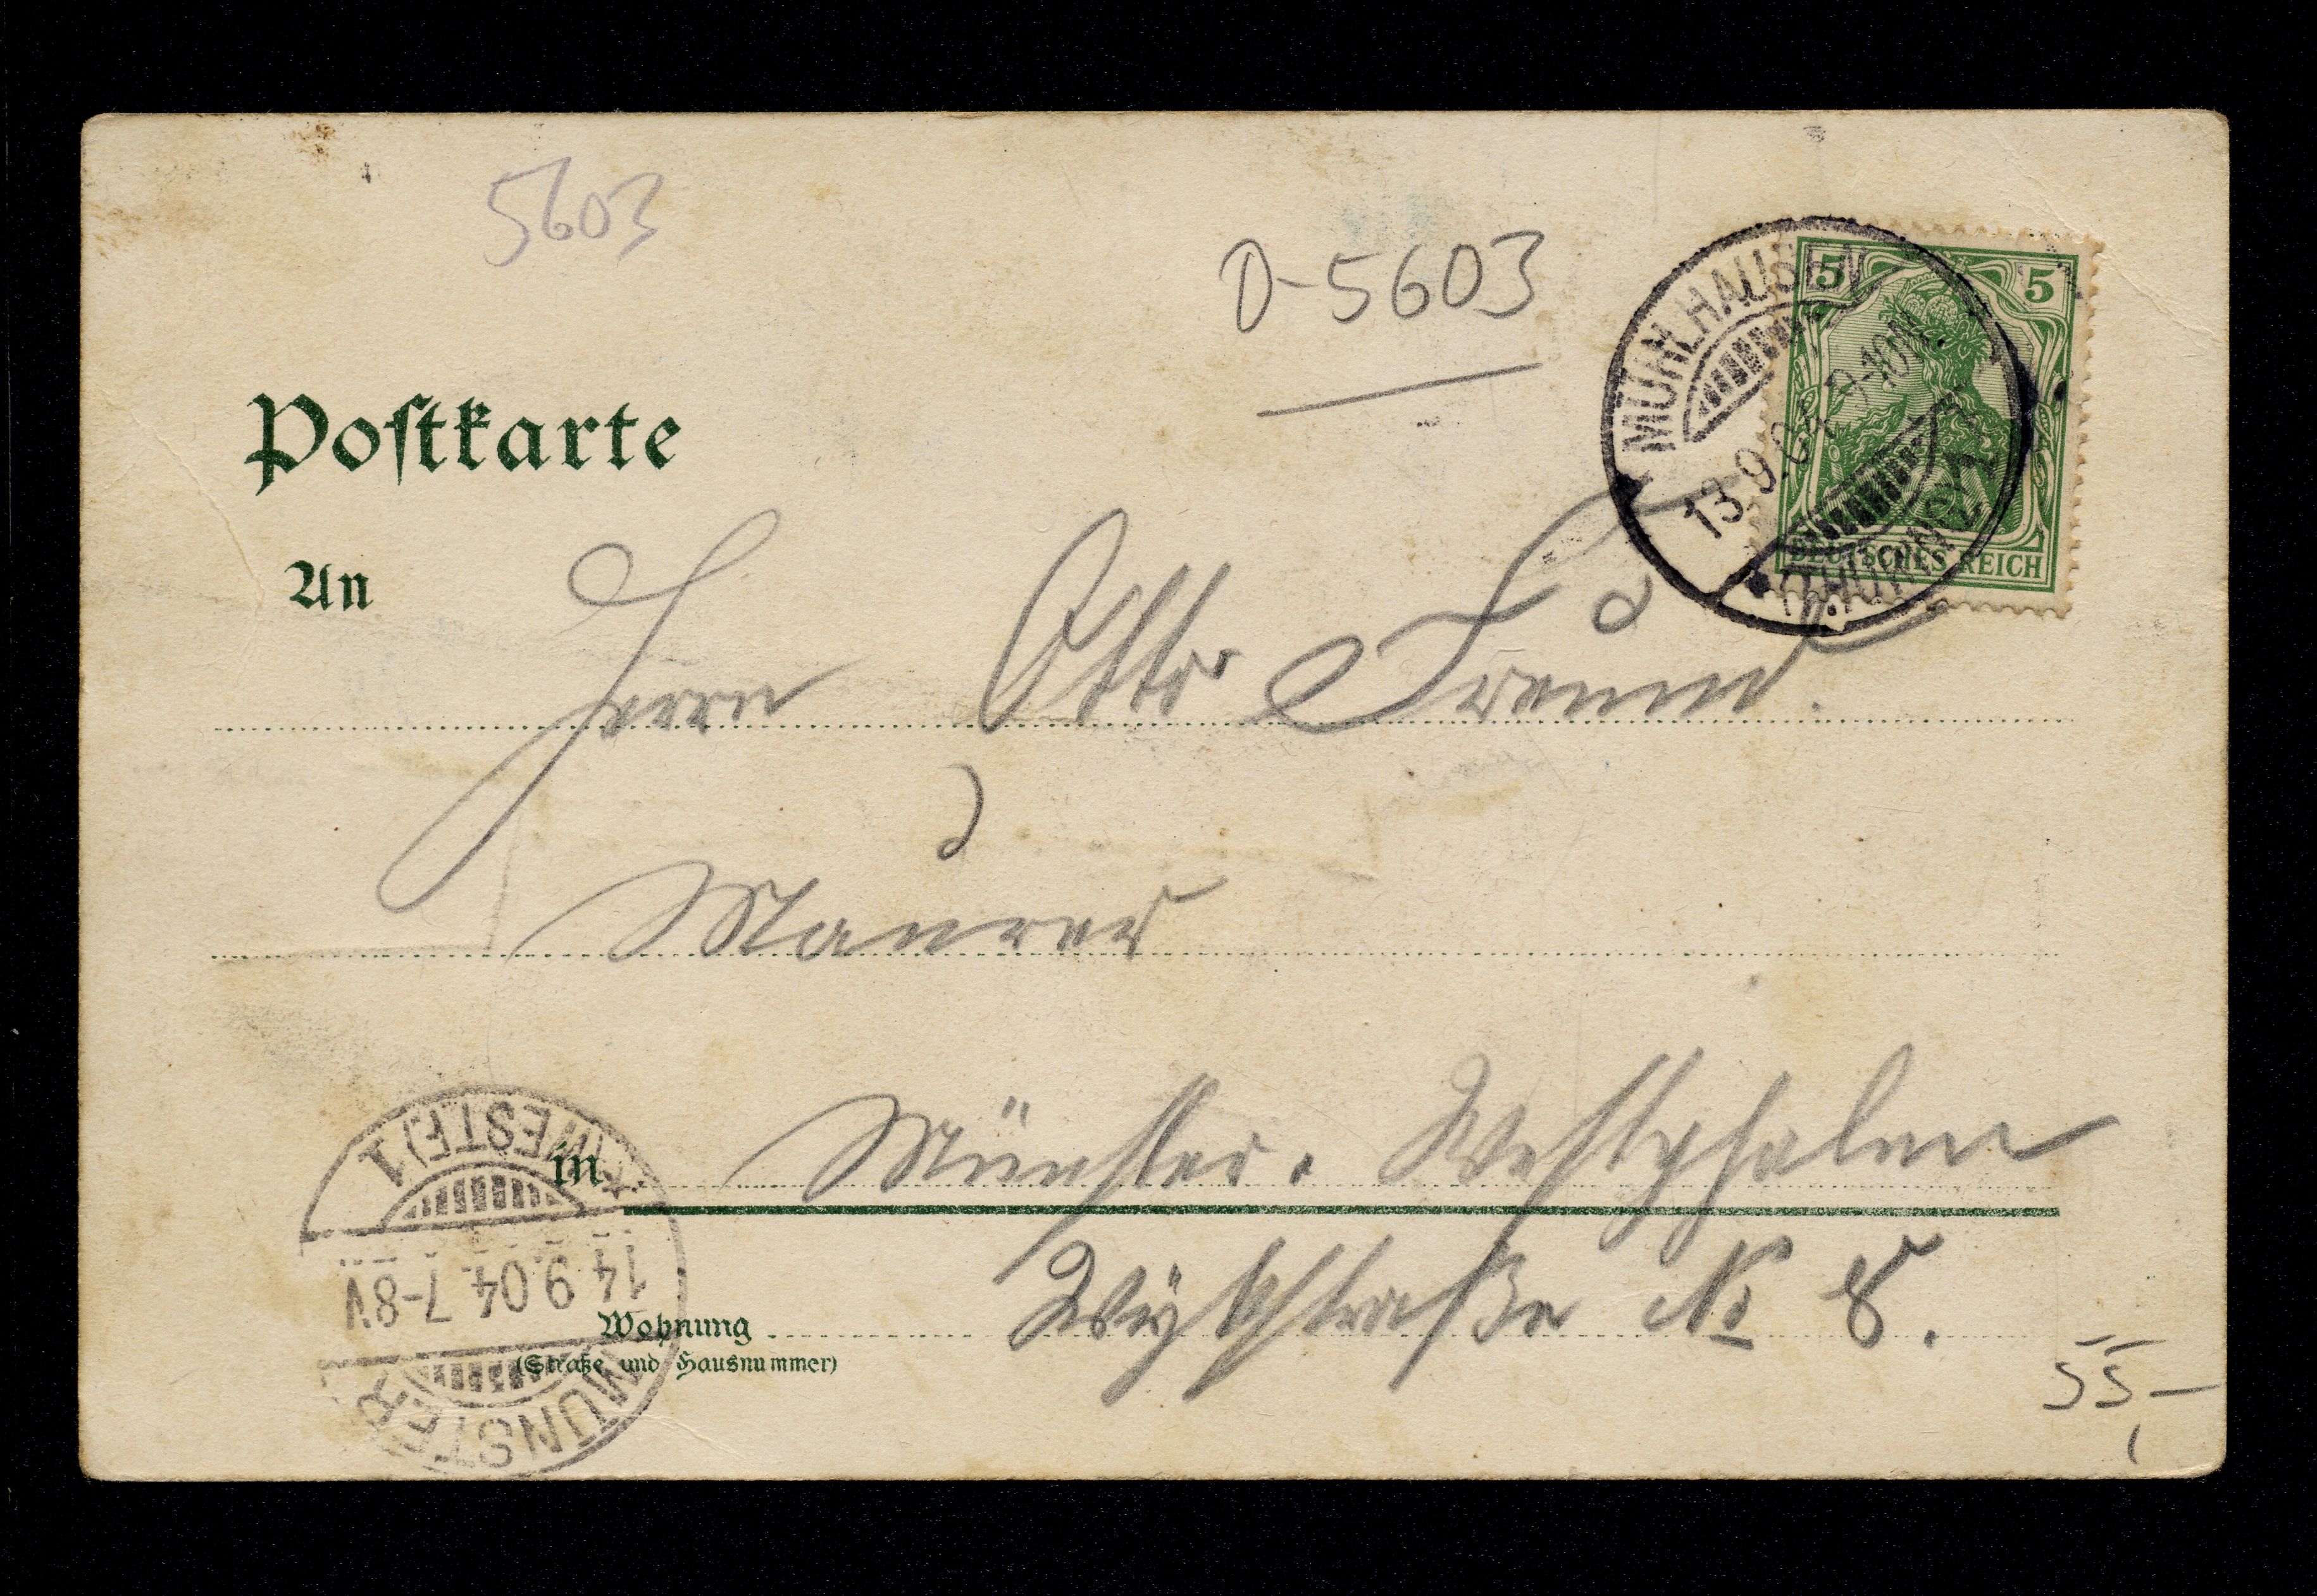 5603
D-5603
MÜHLHAUSEN
13.9.04. 9-10N.
(THÜRINGEN) 1
5 5
DEUTSCHES REICH
Postkarte
An
Herrn Otto Freund.
Maurer
in Münster. Westphalen
Wohnung
(Straße und Hausnummer)
No 8.
MÜNSTER
14.9.04. 7-8V.
(WESTF.) 1
55,-